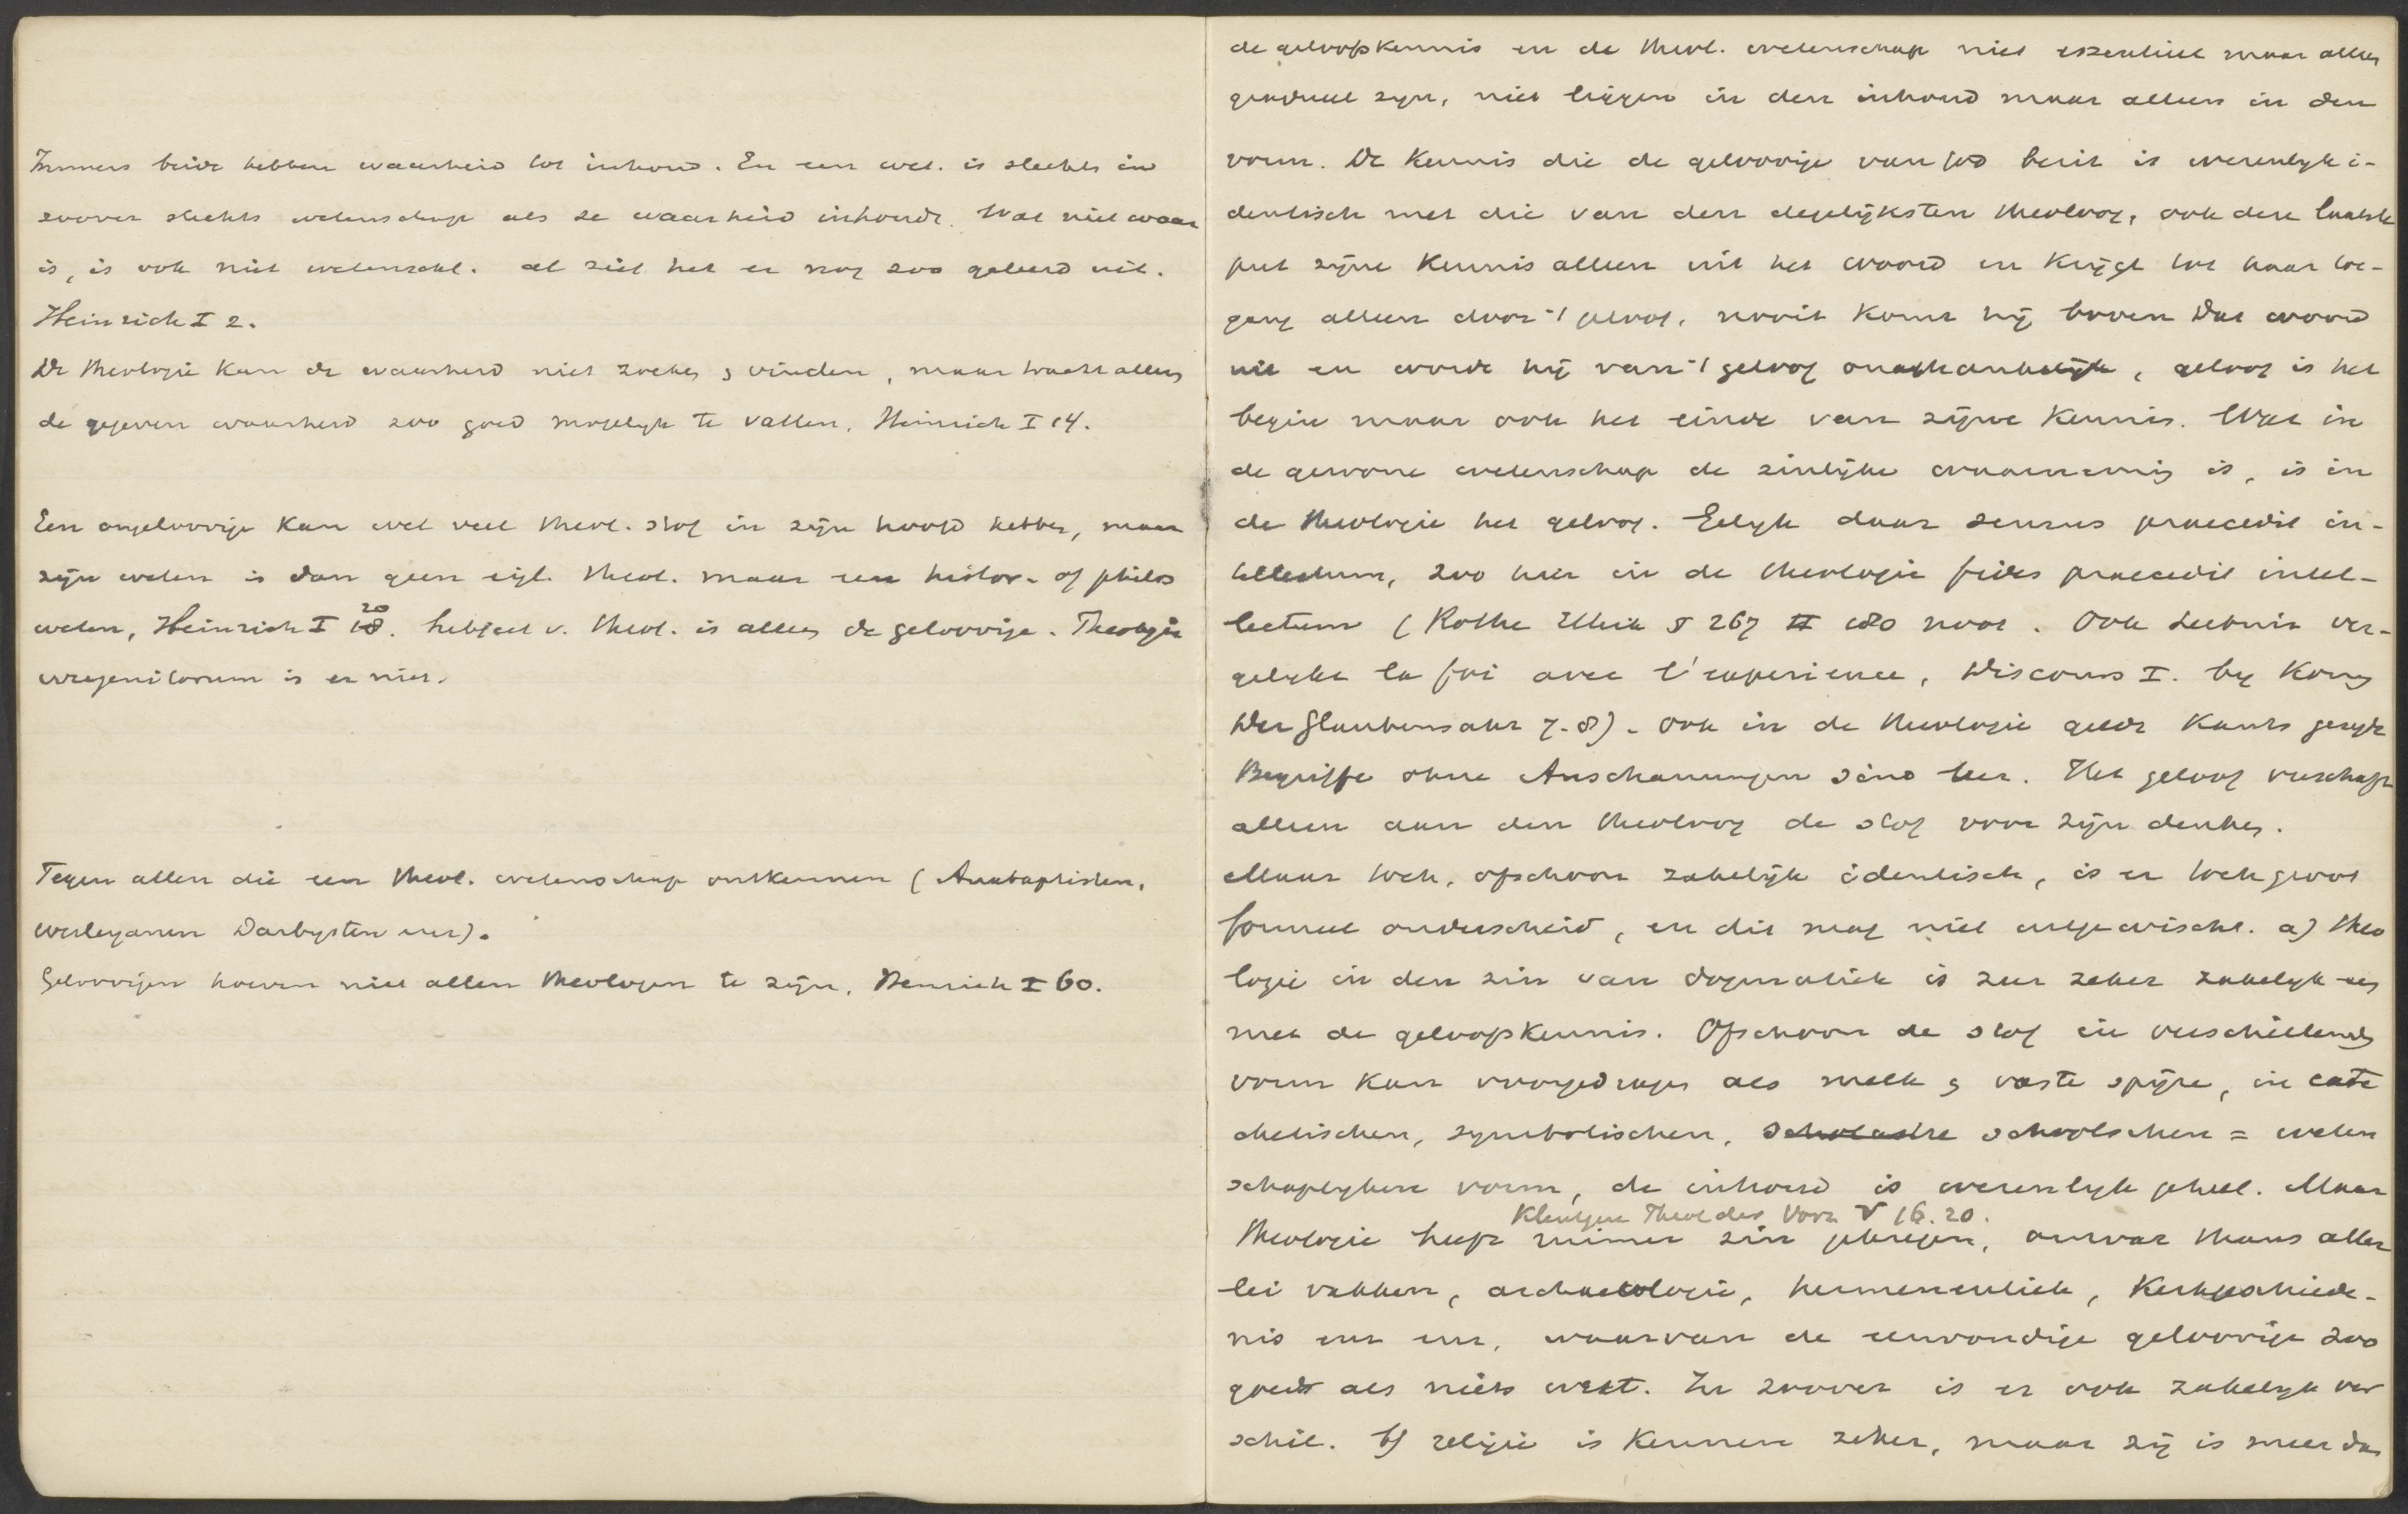 Immers beide hebben waarheid tot inhoud. En een wet. is slechts in
zoover slechts wetenschap als ze waarheid inhoudt. Wat niet waar
is, is ook niet wetenschl. al ziet het er nog zoo geleerd uit.
Heinrich I 2.
De theologie kan de waarheid niet zoeken & vinden, maar tracht alleen
de gegeven waarheid zoo goed mogelyk te vatten. Heinrich I 14.
Een ongeloovige kan wel veel theol. stof in zijn hoofd hebben, maar
zijn weten is dan geen eigl. theol. maar een histor. of philos
weten, Heinrich I 20. Subject v. theol. is alleen de geloovige. Theologia
irregenitorum is er niet.
Tegen allen die een theol. wetenschap ontkennen (Anabaptisten,
Wesleyanen Darbysten enz).
Geloovigen hoeven niet allen theologen te zijn. Heinrich I 60.
de geloofskennis en de theol. wetenschap niet essentieel maar alleen
gradueel zyn, niet liggen in den inhoud maar alleen in den
vorm. De kennis die de geloovige van God bezit is wezenlyk i-
dentisch met die van den degelijksten theoloog, ook deze laatste
put zijne kennis alleen uit het woord en krijgt tot haar toe-
gang alleen door 't geloof. nooit komt hij boven dat woord
uit en wordt hij van 't geloof onafhankelijk, geloof is het
begin maar ook het einde van zijne kennis. Wat in
de gewone wetenschap de zinlijke waarneming is, is in
de theologie het geloof. Gelyk daar sensus praecedit in-
tellectum, zoo hier in de theologie fides praecedit intel-
lectum (Rothe Ethik § 267 II 180 noot. Ook Leibniz ver-
gelykt la foi avec l'experience, Discours I. by König
Der Glaubensakt 7.8). Ook in de theologie geldt Kants gezegde
Begriffe ohne Anschauungen sind leer. Het geloof verschaft
alleen aan den theoloog de stof voor zijn denken.
Maar toch, ofschoon zakelijk identisch, is er toch groot
formeel onderscheid, en dit mag niet uitgewischt. a) theo
logie in den zin van dogmatiek is zeer zeker zakelyk een
met de geloofskennis. Ofschoon de stof in verschillende
vorm kan voorgedragen als melk & vaste spijze, in cate
chetischen, symbolischen, scholastie schoolschen = weten
schaplyken vorm, de inhoud is wezenlyk geheel. Maar
Kleutgen Theol der Vorz V 16.20.
theologie heeft ruimer zin gekregen, omvat thans aller
lei vakken, archaeologie, hermeneutiek, Kerkgeschiede-
nis enz enz, waarvan de eenvoudige geloovige zoo
goed als niets weet. In zoover is er ook zakelyk ver
schil. b) religie is kennen zeker, maar zij is meer dan